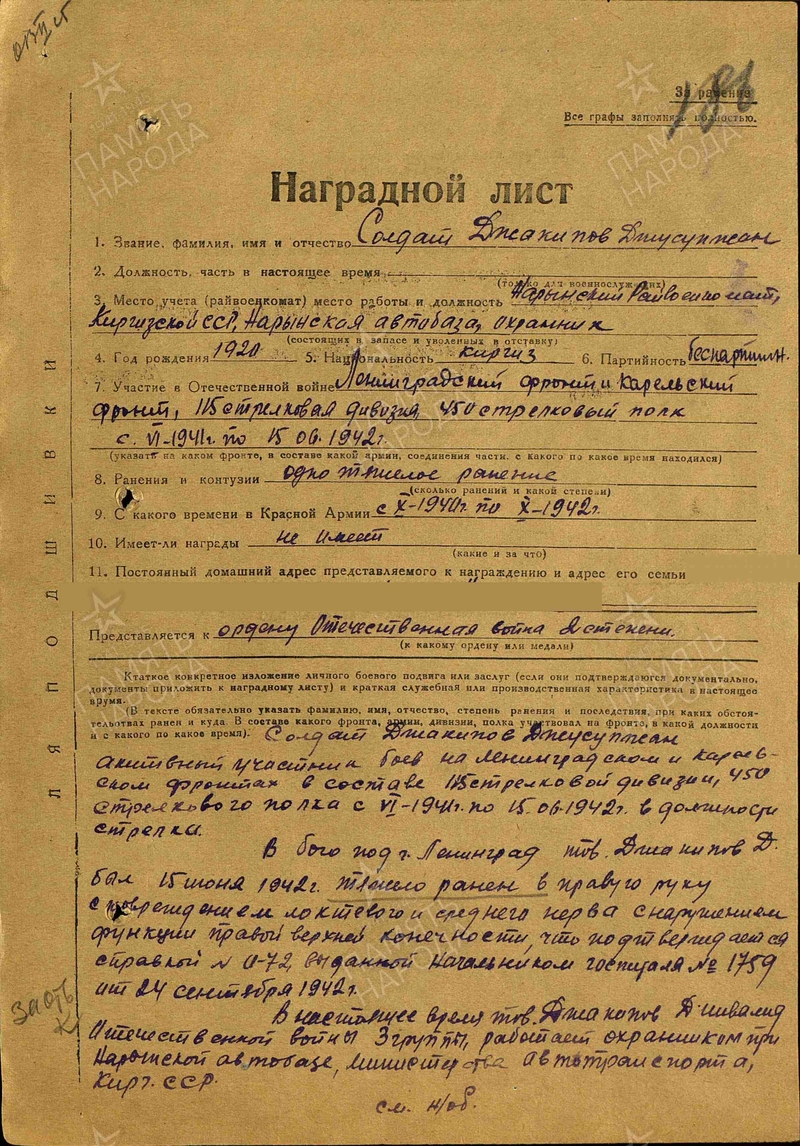 За ранения
Все графы заполнять полностью.
Наградной лист
1. Звание, фамилия, имя и отчество Солдат Джакипов Джусупжан
2. Должность, часть в настоящее время
(только для военнослужащих)
3. Место учета (райвоенкомат) место работы и должность Нарынский Райвоенкомат,
Киргизской ССР, Нарынская автобаза, охранник
(состоящих в запасе и уволенных в отставку)
4. Год рождения 1920 5. Национальность киргиз 6. Партийность беспартийн.
7. Участие в Отечественной войне Ленинградский фронт и Карельский
фронт, 115 стрелковая дивизия, 450 стрелковый полк
с VI-1941г. по 15 06. 1942г.
(указать на каком фронте, в составе какой армии, соединения части, с какого по какое время находился)
8. Ранения и контузии одно тяжелое ранение
(сколько ранений и какой степени)
9. С какого времени в Красной Армии с X-1940г. по X-1942г.
10. Имеет-ли награды не имеет
(какие и за что)
11. Постоянный домашний адрес представляемого к награждению и адрес его семьи
Представляется к ордену Отечественная война степени.
(к какому ордену или медали)
Кткаткое конкретное изложение личного боевого подвига или заслуг (если они подтверждаются документально,
документы приложить к наградному листу) и краткая служебная или производственная характеристика в настоящее
время.
(В тексте обязательно указать фамилию, имя, отчество, степень ранения и последствия, при каких обстоя-
тельствах ранен и куда. В составе какого фронта, армии, дивизии, полка участвовал на фронте, в какой должности
и с какого по какое время).
Солдат Джакипов Джусупжан
активный участник боев на Ленинградском и Карель-
ском фронтах в составе 115 стрелковой дивизии, 450
стрелкового полка с VI-1941г. по 15.06.1942г. в должности
стрелка.
В бою под г. Ленинград тов. Джакипов Д.
был 15 июня 1942г. тяжело ранен в правую руку
с повреждением локтевого и среднего нерва с нарушением
функции правой верхней конечности, что подтверждается
справкой N И-72, выданной Начальником госпиталя № 1759
от 24 сентября 1942г.
В настоящее время тов. Джакипов Д. инвалид
Отечественной войны 3 группы, работает охранником при
Нарынской автобазе, Министерства автотранспорта,
Кирг. ССР.
см. н/об.
ДЛЯ ПОДШИВКИ
ПАМЯТЬ НАРОДА